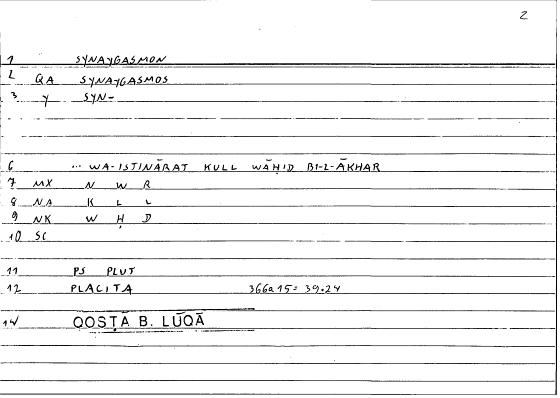 2
1 SYNAYGASMON
2 QA SYNAYGASMOS
3 Y SYN-
6 ... WA-ISTINĀRAT KULL WĀḤID BI-L-ĀKHAR
7 MX N W R
8 NA K L L
9 NK W Ḥ D
10 SC
11 PS PLUT
12 PLACITA 366a15 = 39.24
14 QOSṬĀ B. LŪQĀ